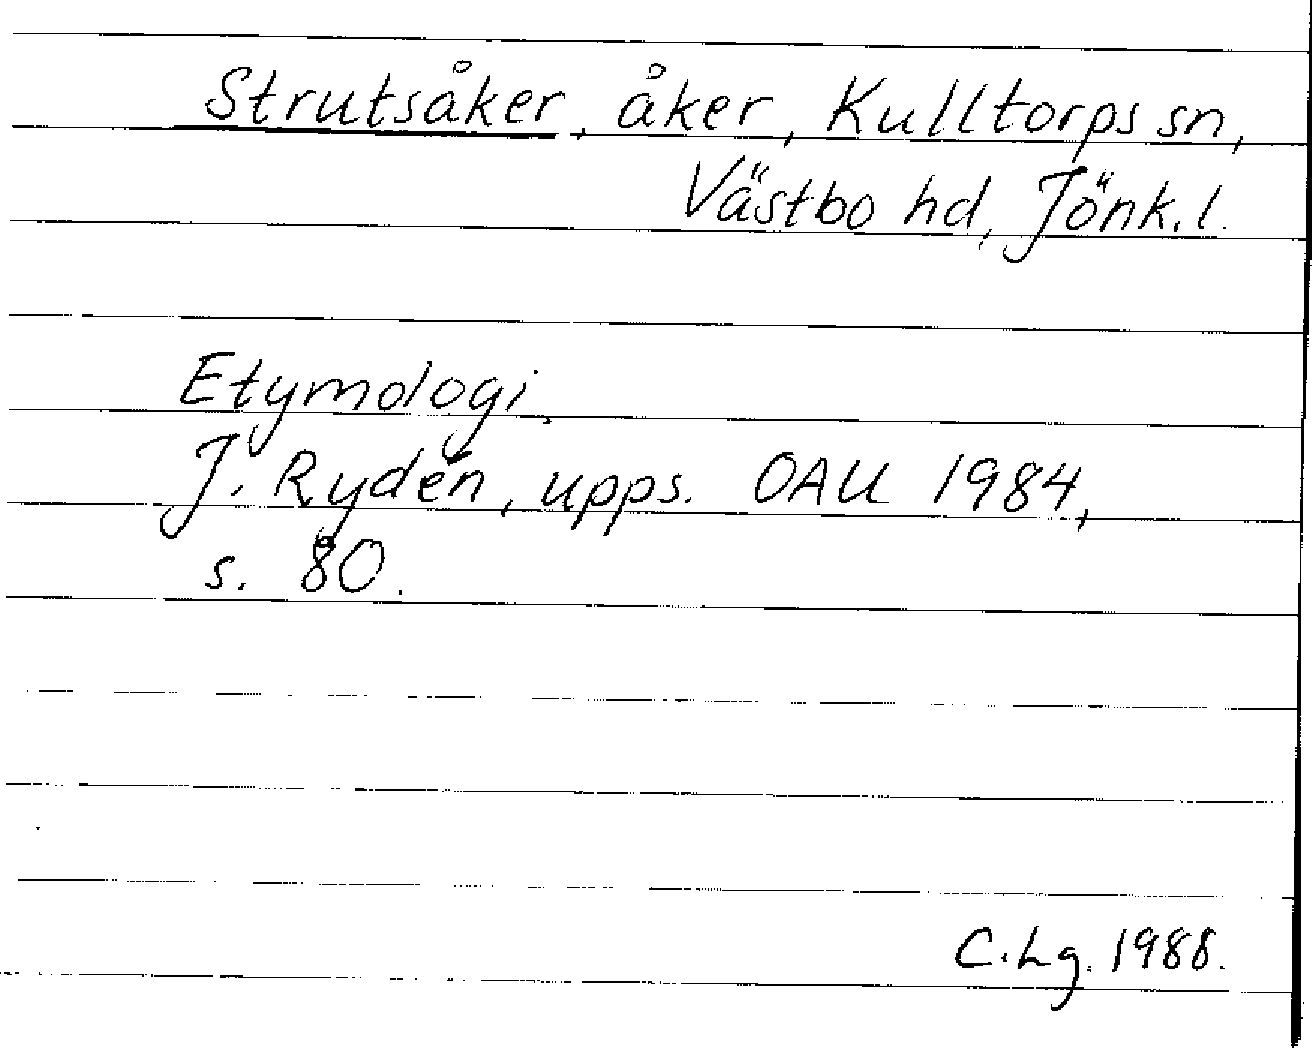 Strutsåker, åker, Kulltorps sn,
Västbo hd, Jönk. l.
Etymologi.
J. Rydén, upps. OAU 1984,
s. 80.
C. Lg. 1988.